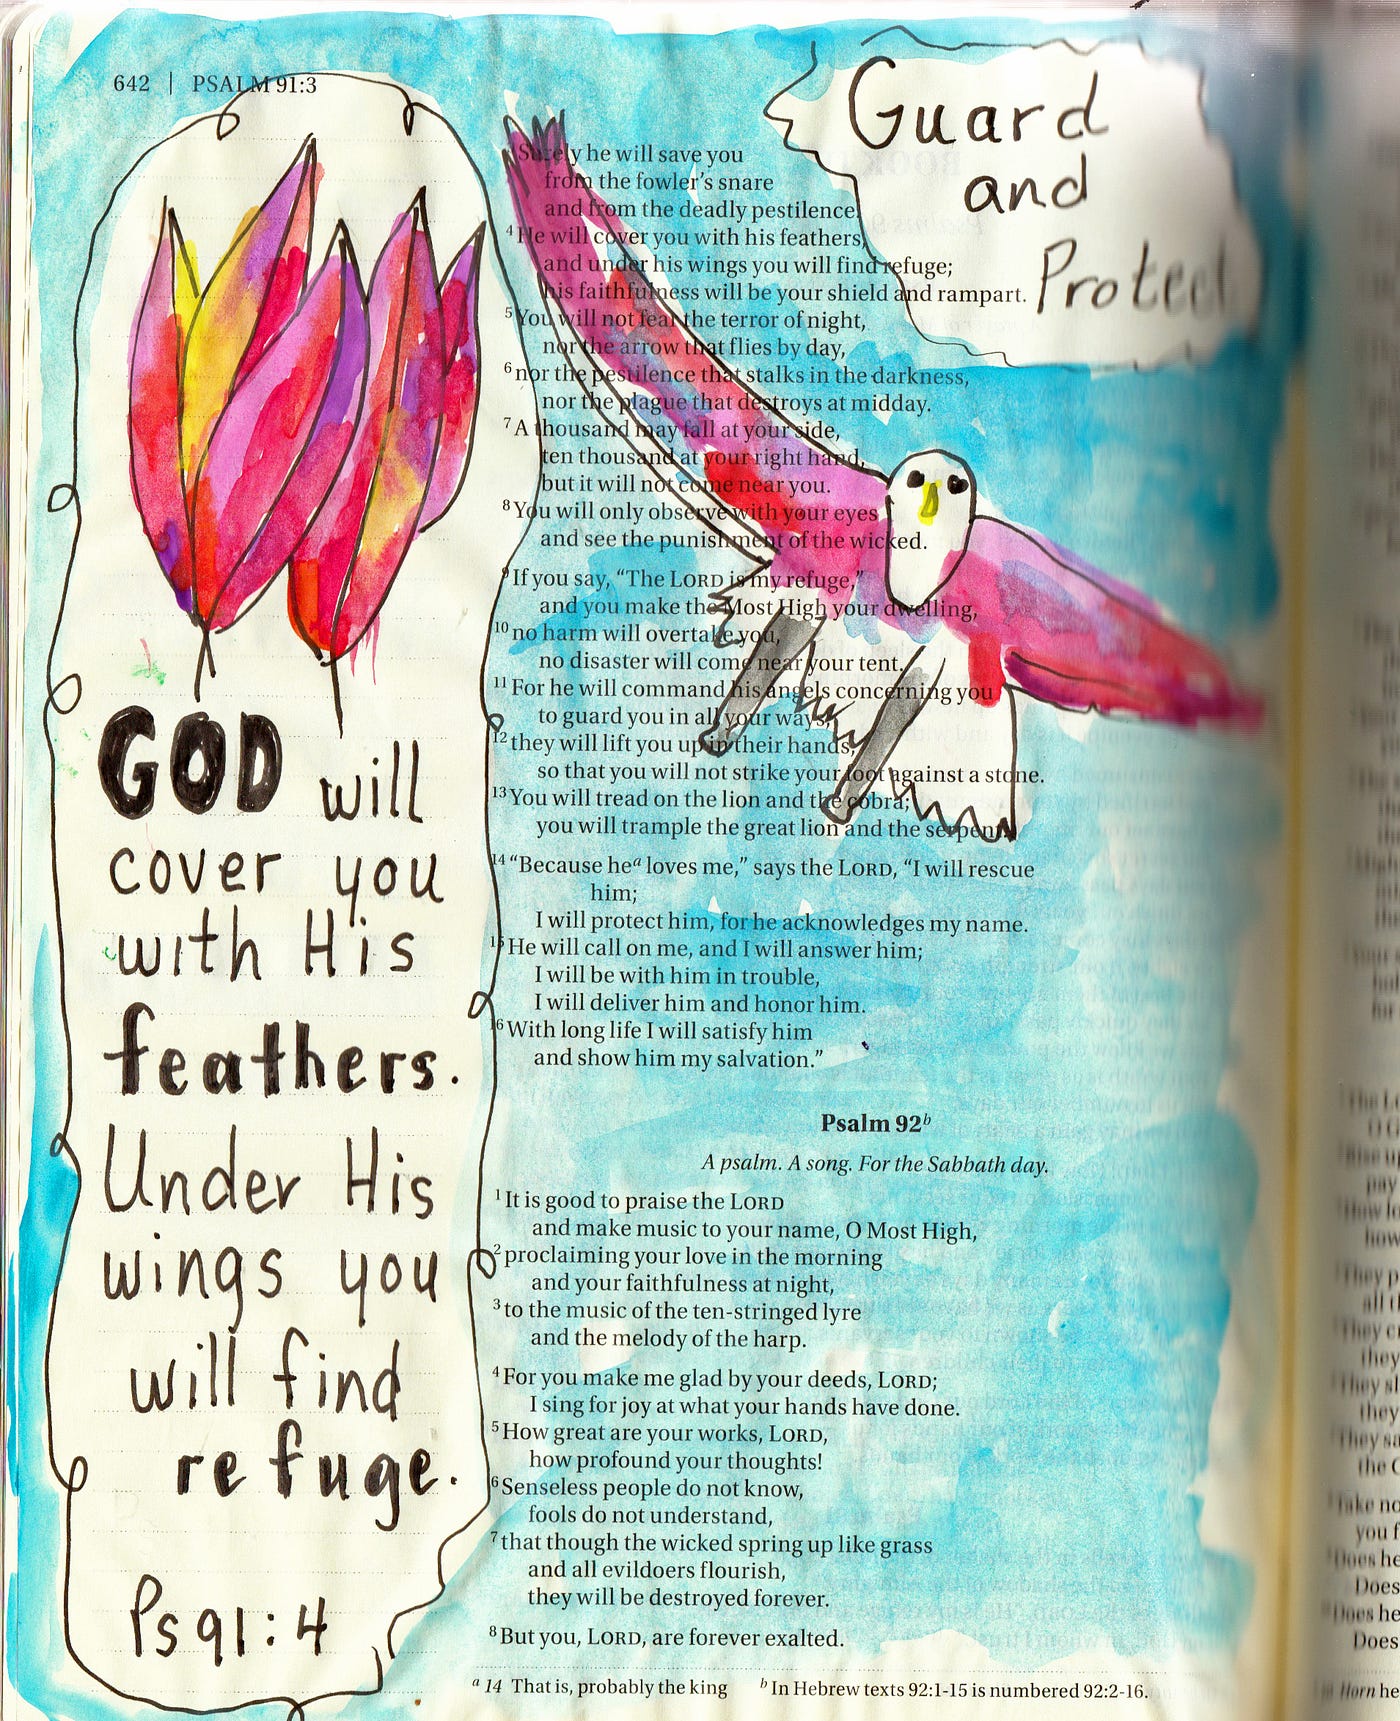 642 | PSALM 91:3
Guard
and
Protect
Surely he will save you
from the fowler's snare
and from the deadly pestilence.
4 He will cover you with his feathers,
and under his wings you will find refuge;
his faithfulness will be your shield and rampart.
5 You will not fear the terror of night,
nor the arrow that flies by day,
6 nor the pestilence that stalks in the darkness,
nor the plague that destroys at midday.
7 A thousand may fall at your side,
ten thousand at your right hand,
but it will not come near you.
8 You will only observe with your eyes
and see the punishment of the wicked.
9 If you say, “The LORD is my refuge,”
and you make the Most High your dwelling,
10 no harm will overtake you,
no disaster will come near your tent.
11 For he will command his angels concerning you
to guard you in all your ways;
12 they will lift you up in their hands,
so that you will not strike your foot against a stone.
13 You will tread on the lion and the cobra;
you will trample the great lion and the serpent.
14 “Because he a loves me,” says the LORD, “I will rescue
him;
I will protect him, for he acknowledges my name.
15 He will call on me, and I will answer him;
I will be with him in trouble,
I will deliver him and honor him.
16 With long life I will satisfy him
and show him my salvation.”
Psalm 92 b
A psalm. A song. For the Sabbath day.
1 It is good to praise the LORD
and make music to your name, O Most High,
2 proclaiming your love in the morning
and your faithfulness at night,
3 to the music of the ten-stringed lyre
and the melody of the harp.
4 For you make me glad by your deeds, LORD;
I sing for joy at what your hands have done.
5 How great are your works, LORD,
how profound your thoughts!
6 Senseless people do not know,
fools do not understand,
7 that though the wicked spring up like grass
and all evildoers flourish,
they will be destroyed forever.
8 But you, LORD, are forever exalted.
a 14 That is, probably the king b In Hebrew texts 92:1-15 is numbered 92:2-16.
GOD will
cover you
with His
feathers.
Under His
wings you
will find
refuge.
Ps 91:4